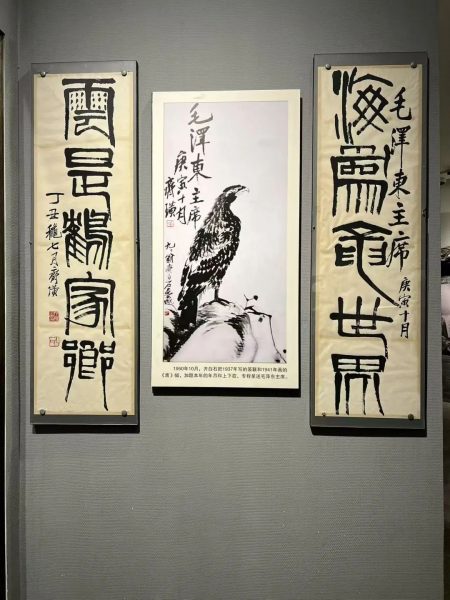 海為龍世界
毛澤東主席
庚寅十月
毛澤東主席
庚寅十月
齊璜
1950年10月，齐白石把1937年写的篆联和1941年画的
《鹰》幅，加题本年的年月和上下款，专程呈送毛泽东主席。
雲是鶴家鄉
丁丑穐七月齊璜